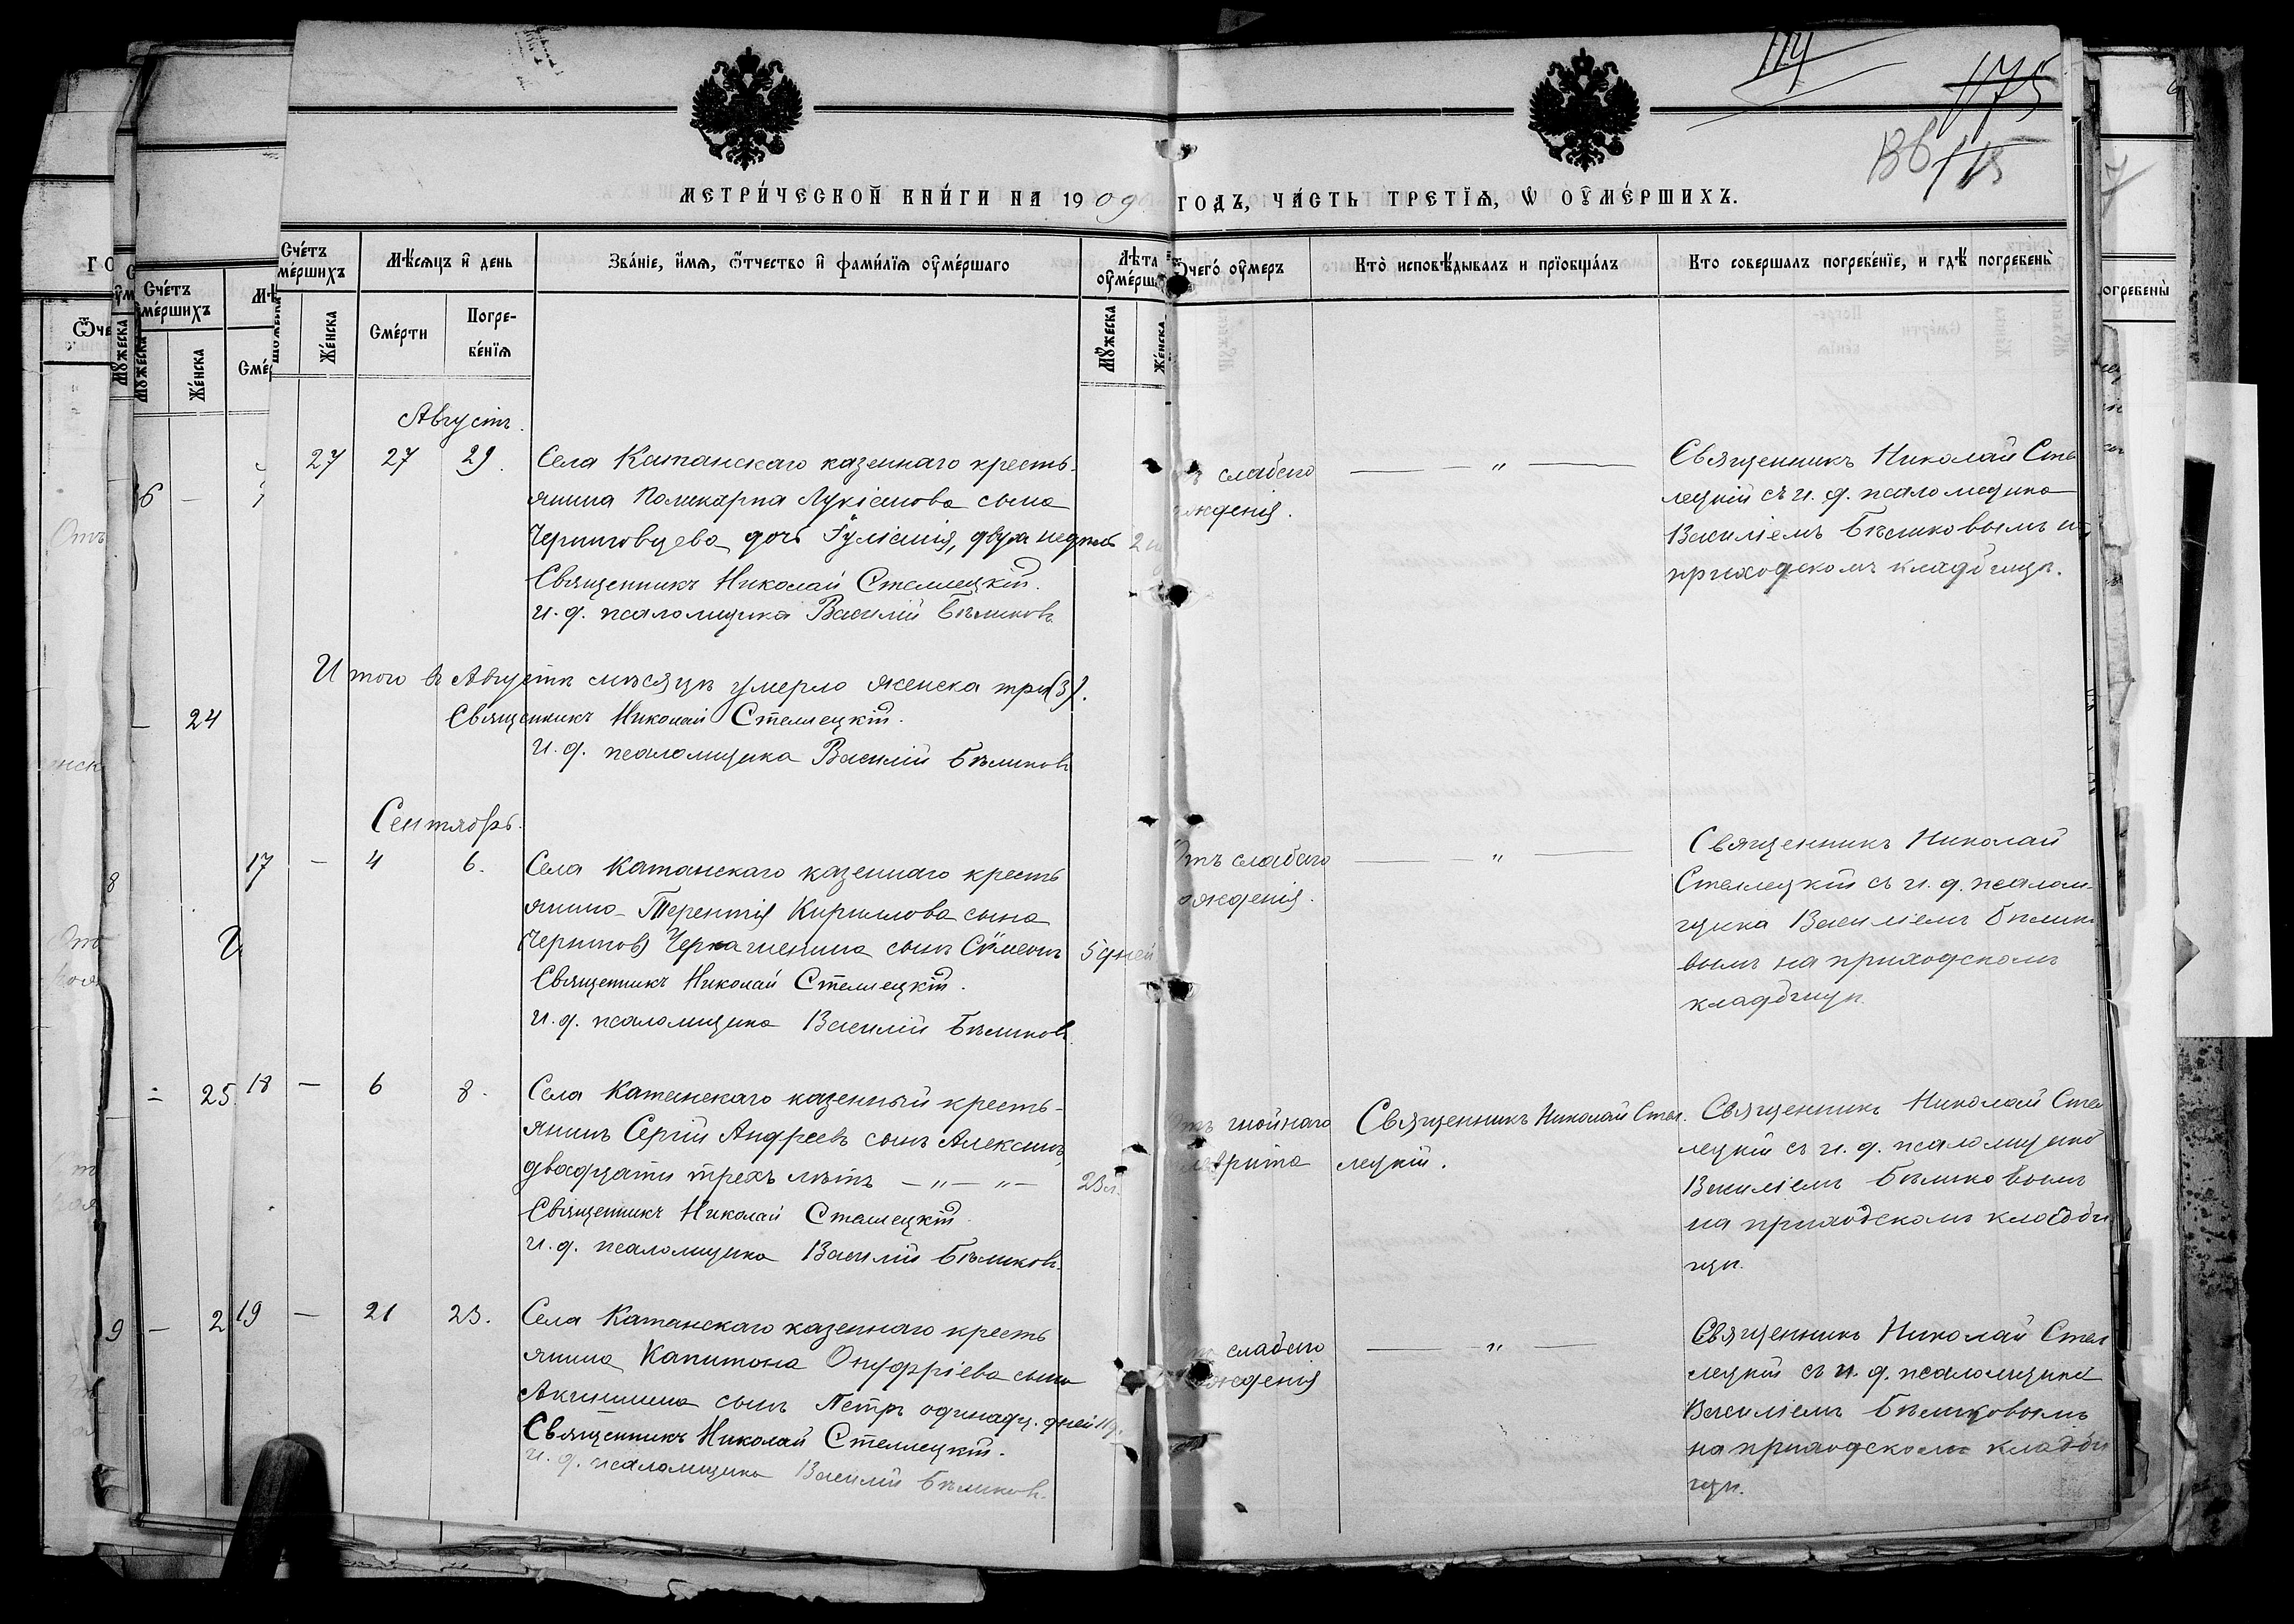 114
175
МЕТРИ́ЧЕСКОЙ КНИ́ГИ НА 1909 ГОДЪ, ЧА́СТЬ ТРЕТІѦ, Ѡ ОУМЕ́РШИХЪ.
Сче́тъ оумершихъ
Мѣсѧцъ и день
Зва́ніе, имѧ, ѿтчество и фами́лїѧ оуме́ршаго
Лѣта оуме́рш
Ѿчегѡ́ оумеръ
Кто̀ исповѣ́дывалъ и прїобща́лъ
Кто совершалъ погребе́нїе, и гдѣ̀ погребены̀
Же́нска
Сме́рти
Погребе́нїѧ
Мꙋ́жеска
Же́нска
Августъ.
27 27 29. Села Катанскаго казеннаго кресть-
янина Поликарпа Лукіанова сына
Черниговцева дочь Іуліанія, двухъ недѣль 2
Священникъ Николай Стеллецкій.
И. д. псаломщика Василій Бѣликовъ
слабаго
рожденія.
— „ —
Священникъ Николай Стел
лецкій съ и. д. псаломщика
Василіемъ Бѣликовымъ на
приходскомъ кладбищѣ.
Итого въ Августѣ мѣсяцѣ умерло женска три (3).
Священникъ Николай Стеллецкій.
И. д. псаломщика Василій Бѣликовъ
Сентябрь.
17 — 4 6. Села Катанскаго казеннаго кресть
янина Терентія Кириллова сына
(Чернигов) Черкашенина сынъ Сѵмеонъ 5 дней
Священникъ Николай Стеллецкій.
И. д. псаломщика Василій Бѣликовъ
Отъ слабаго
рожденія.
— „ —
Священникъ Николай
Стеллецкій съ и. д. псалом-
щика Василіемъ Бѣлико
вымъ на приходскомъ
кладбищѣ.
18 — 6 8. Села Катанскаго казенный кресть-
янинъ Сергій Андреевъ сынъ Алексинъ,
двадцати трехъ лѣтъ — „ — „ — 23 л.
Священникъ Николай Стеллецкій
И. д. псаломщика Василій Бѣликовъ.
Отъ гнойнаго
плеврита
Священникъ Николай Стел.
лецкій.
Священникъ Николай Стел
лецкій съ и. д. псаломщика
Василіемъ Бѣликовымъ
на приходскомъ кладби
щѣ.
19 — 21 23. Села Катанскаго казеннаго кресть
янина Капитона Онуфріева сына
Акиншина сынъ Петръ одинадц. дней 11 д.
Священникъ Николай Стеллецкій.
И. д. псаломщика Василій Бѣликовъ.
слабаго
рожденія
— „ —
Священникъ Николай Стел
лецкій съ и. д. псаломщика
Василіемъ Бѣликовымъ
на приходскомъ кладби
щѣ.
Сче́тъ
ме́ршихъ
Же́нска
24
25